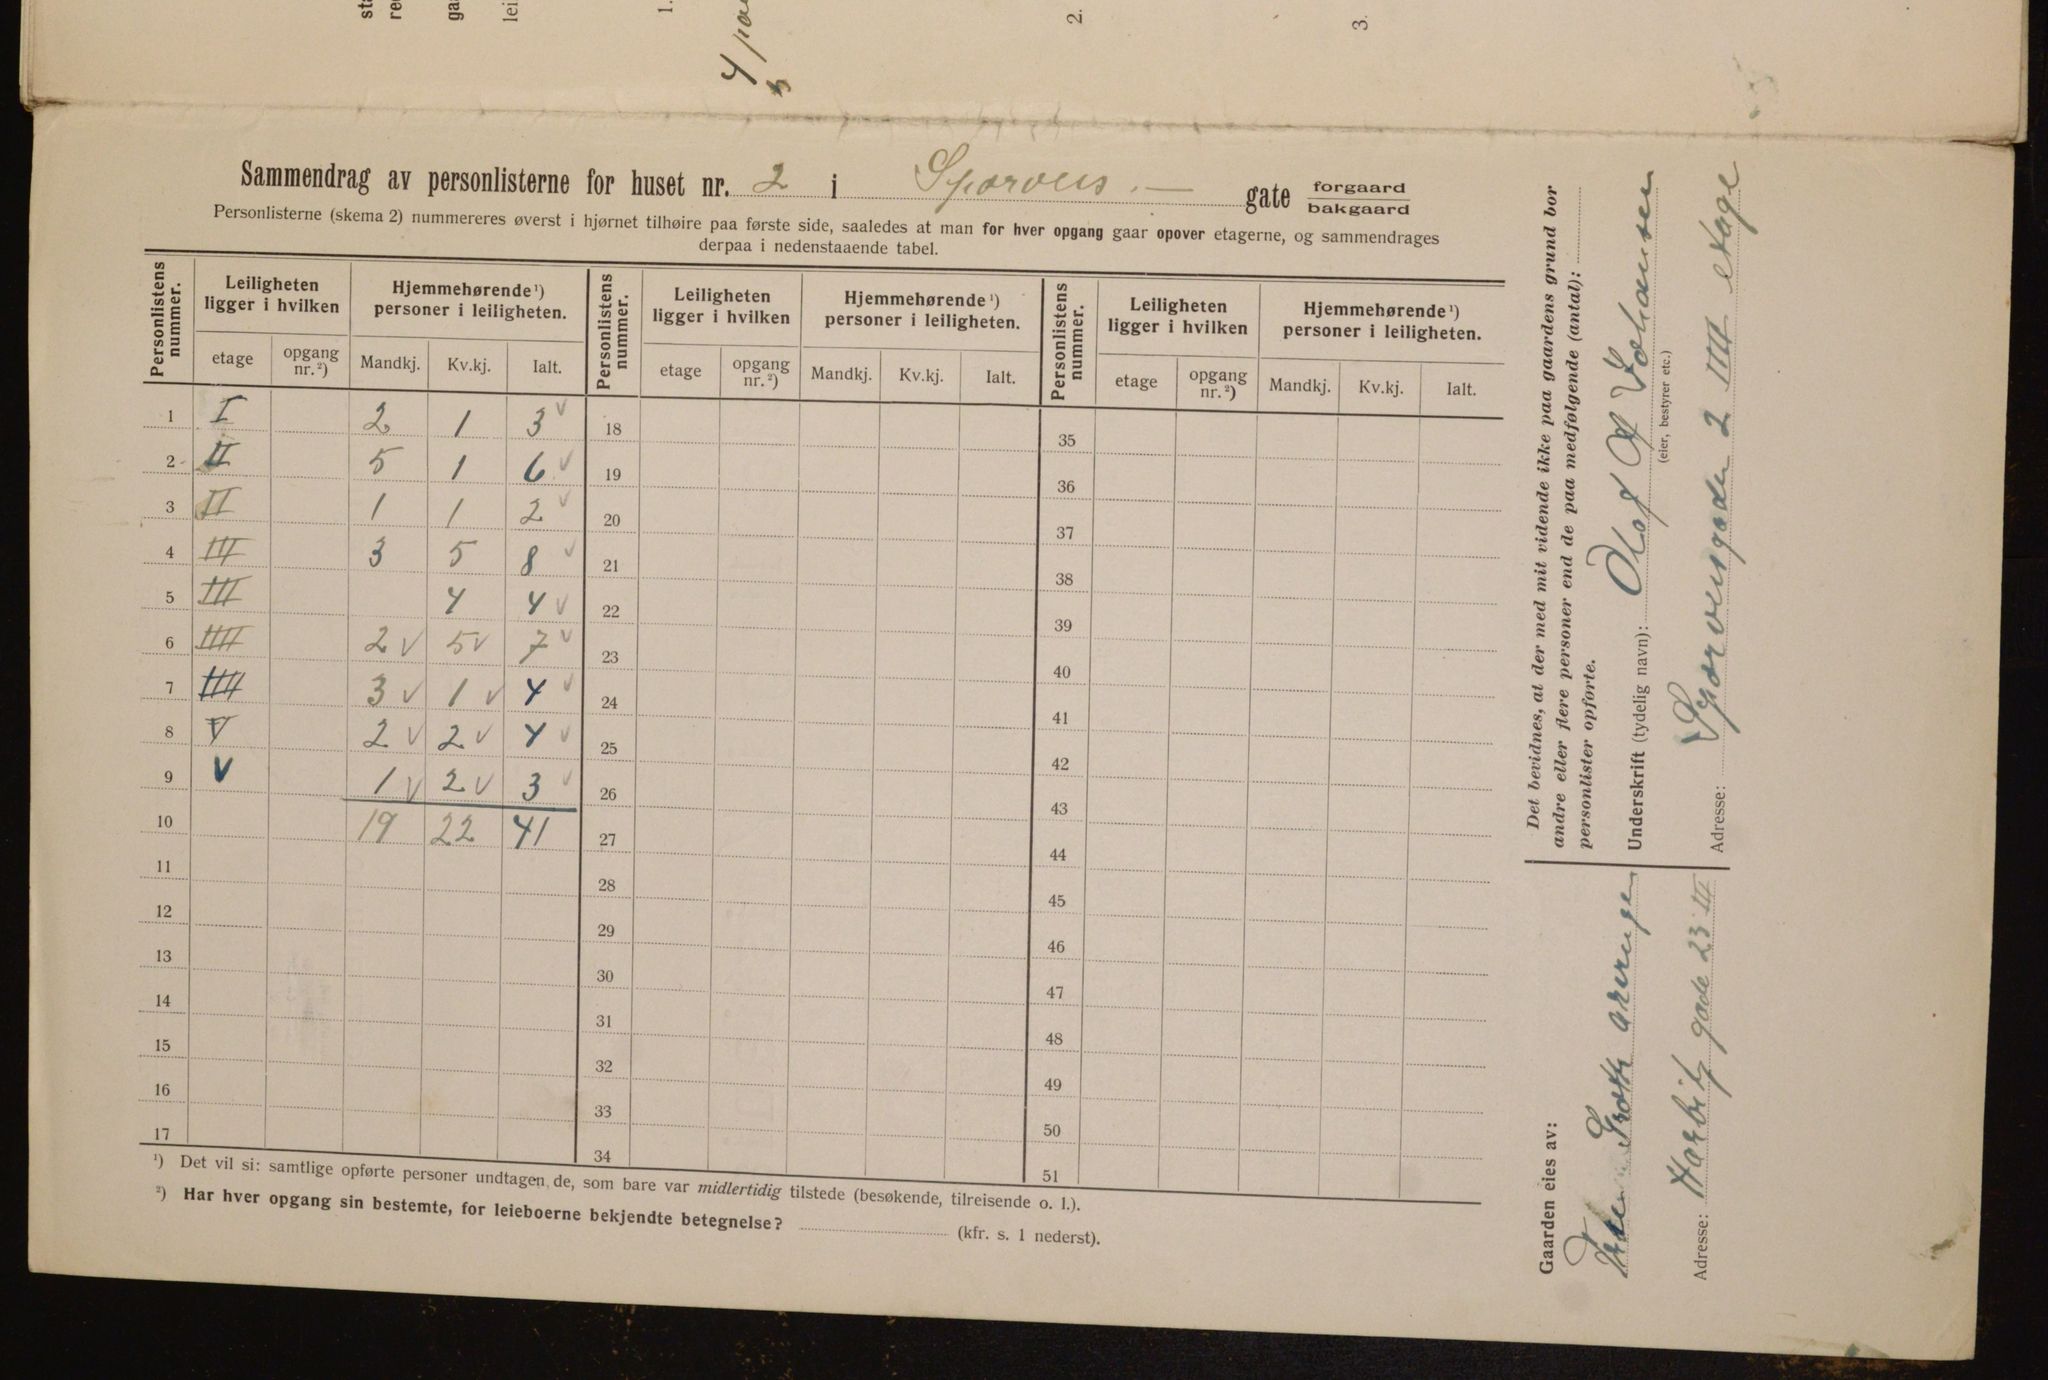 sta
re
ga
lei
1.
4 pa
2.
3.
Sammendrag av personlisterne for huset nr. 2 i Sporveis.— gate forgaard
bakgaard
Personlisterne (skema 2) nummereres øverst i hjørnet tilhøire paa første side, saaledes at man for hver opgang gaar opover etagerne, og sammendrages
derpaa i nedenstaaende tabel.
Personlistens nummer. Leiligheten ligger i hvilken Hjemmehørende ¹) personer i leiligheten. Personlistens nummer. Leiligheten ligger i hvilken Hjemmehørende ¹) personer i leiligheten. Personlistens nummer. Leiligheten ligger i hvilken Hjemmehørende ¹) personer i leiligheten.
etage opgang nr. ²) Mandkj. Kv.kj. Ialt. etage opgang nr. ²) Mandkj. Kv.kj. Ialt. etage opgang nr. ²) Mandkj. Kv.kj. Ialt.
1 I 2 1 3 √ 18 35
2 II 5 1 6 √ 19 36
3 II 1 1 2 √ 20 37
4 III 3 5 8 √ 21 38
5 III 4 4 √ 22 39
6 IIII 2 √ 5 √ 7 √ 23 40
7 IIII 3 √ 1 √ 4 √ 24 41
8 V 2 √ 2 √ 4 √ 25 42
9 V 1 √ 2 √ 3 √ 26 43
10 19 22 41 27 44
11 28 45
12 29 46
13 30 47
14 31 48
15 32 49
16 33 50
17 34 51
¹) Det vil si: samtlige opførte personer undtagen de, som bare var midlertidig tilstede (besøkende, tilreisende o. l.).
²) Har hver opgang sin bestemte, for leieboerne bekjendte betegnelse? (kfr. s. 1 nederst).
Det bevidnes, at der med mit vidende ikke paa gaardens grund bor
andre eller flere personer end de paa medfølgende (antal):
personlister opførte.
Underskrift (tydelig navn): Olaf Johansen
(eier, bestyrer etc.)
Adresse: Sporveisgaden 2 IIII etage
Gaarden eies av:
Groth
Adresse: Harbitz gade 23 III